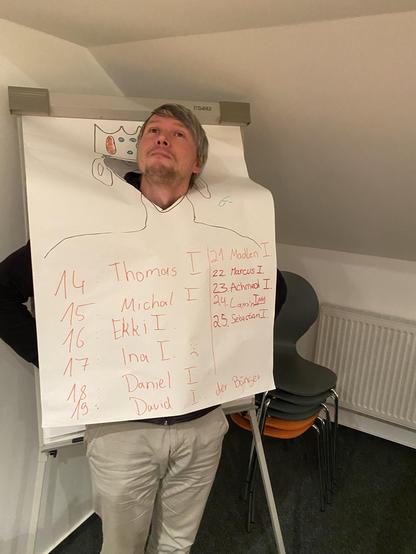 14 Thomas I
15 Michal I
16 Ekki I
17 Ina I. :(
18 Daniel I
19 David I. der Bürger
21 Madlen I
22 Marcus I.
23. Achmed I.
24.
25. Sebastian I.